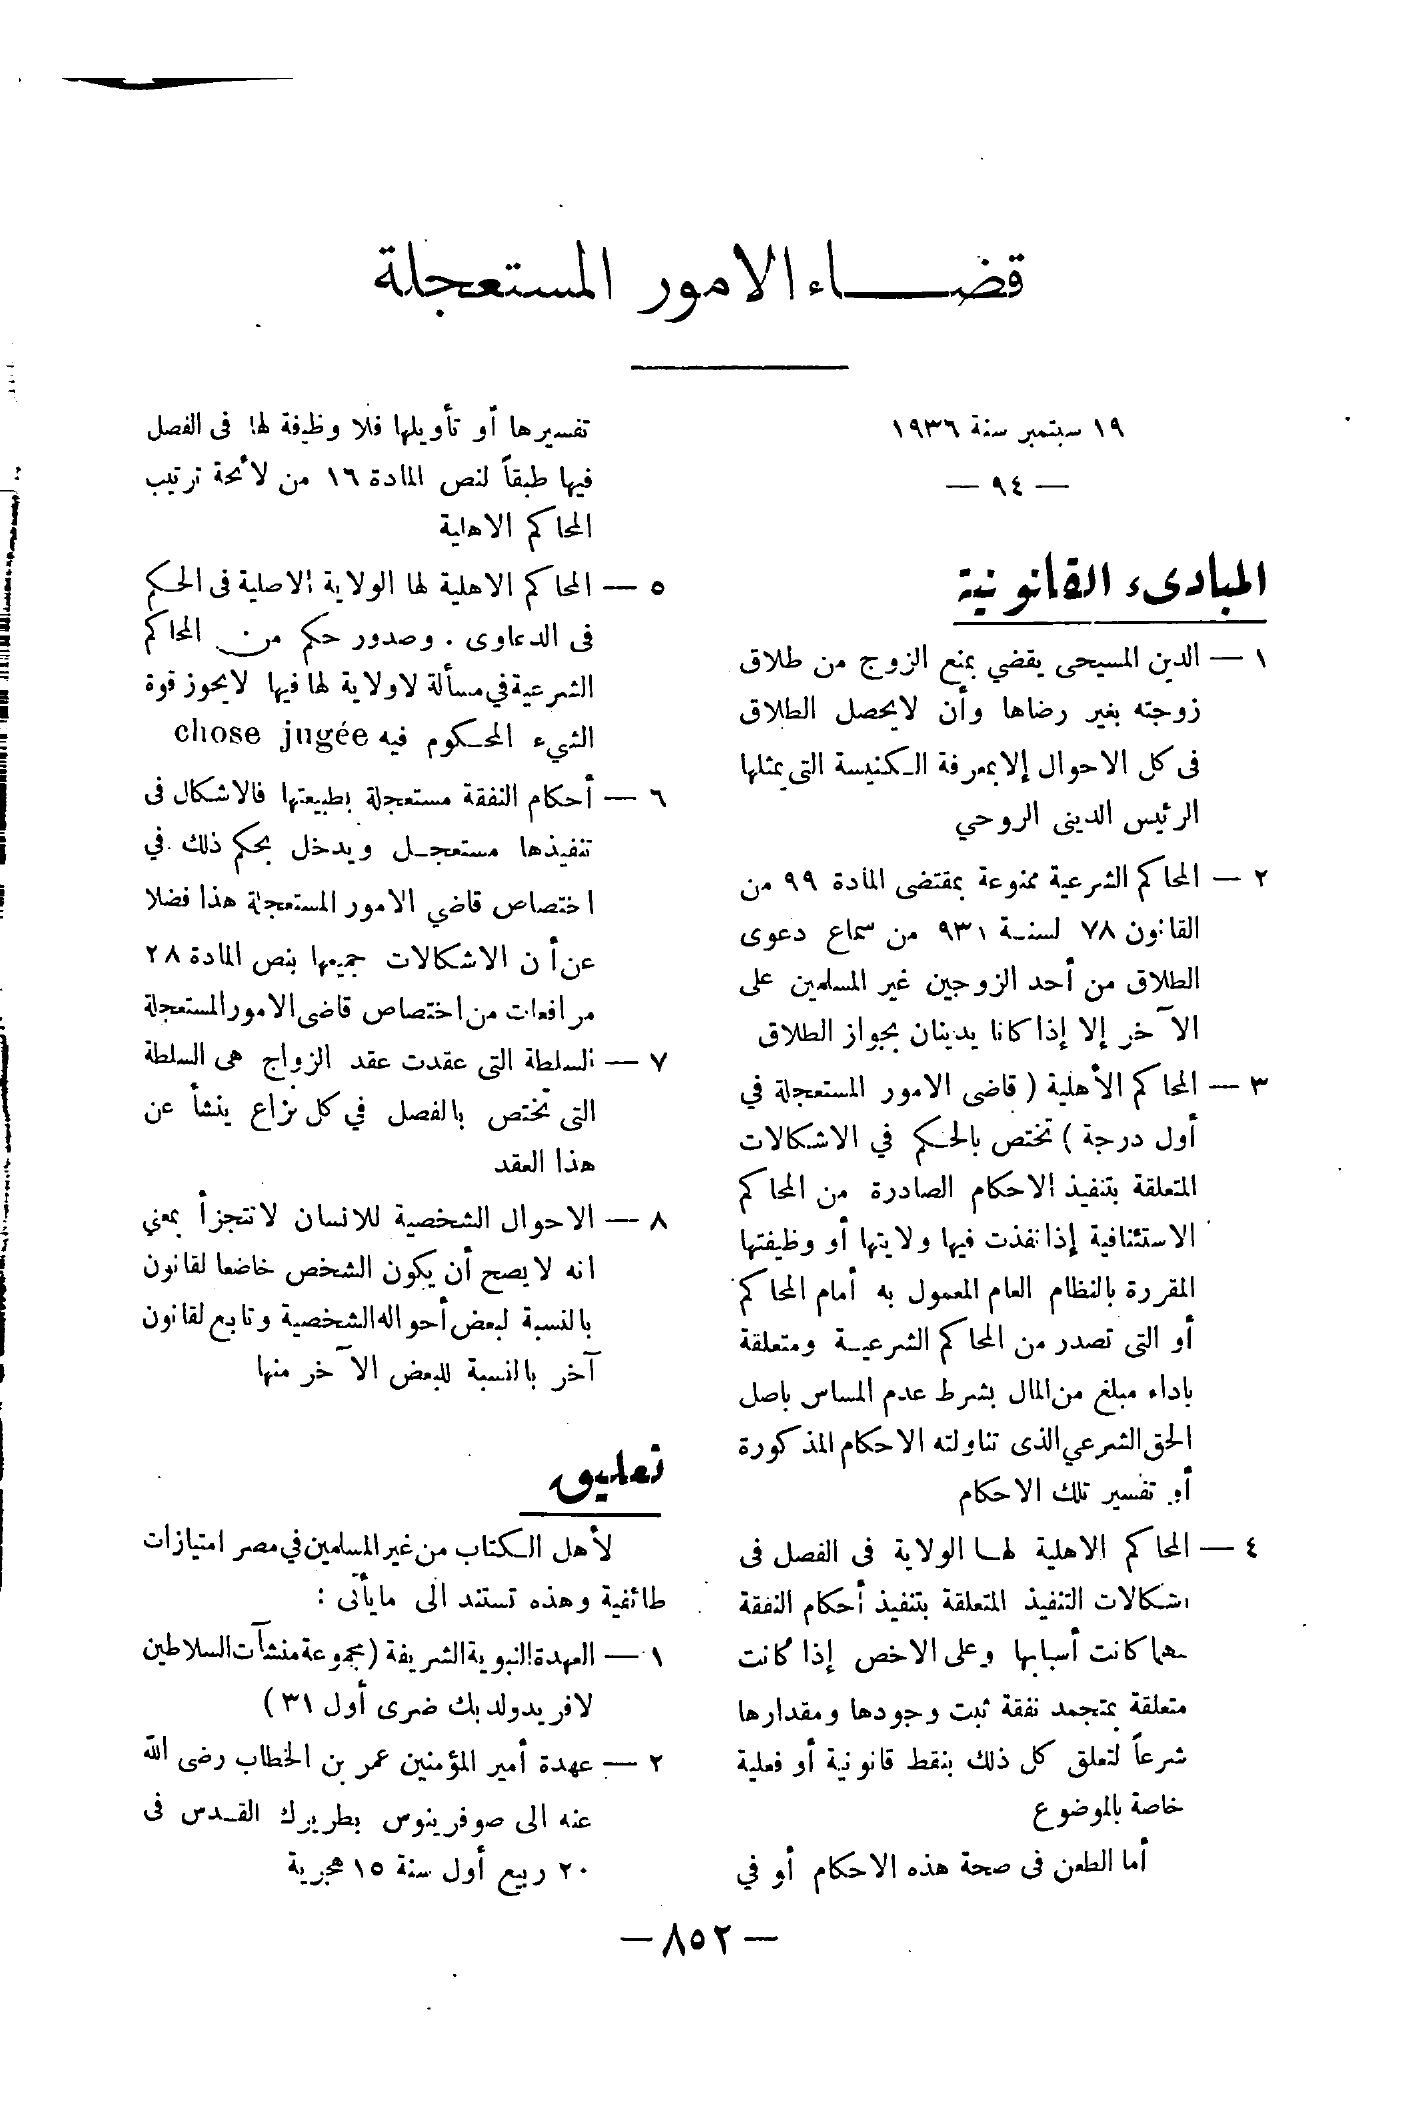 قضاء الامور المستعجلة
١٩ سبتمبر سنة ١٩٣٦
— ٩٤ —
المبادىء القانونية
١ — الدين المسيحى يقضي بمنع الزوج من طلاق
زوجته بغير رضاها وأن لايحصل الطلاق
فى كل الاحوال إلا بمعرفة الكنيسة التى يمثلها
الرئيس الدينى الروحي
٢ — المحاكم الشرعية ممنوعة بمقتضى المادة ٩٩ من
القانون ٧٨ لسنة ٩٣١ من سماع دعوى
الطلاق من أحد الزوجين غير المسلمين على
الآخر إلا إذا كانا يدينان بجواز الطلاق
٣ — المحاكم الأهلية ( قاضى الامور المستعجلة في
أول درجة ) تختص بالحكم في الاشكالات
المتعلقة بتنفيذ الاحكام الصادرة من المحاكم
الاستئنافية إذا نفذت فيها ولايتها أو وظيفتها
المقررة بالنظام العام المعمول به أمام المحاكم
أو التى تصدر من المحاكم الشرعية ومتعلقة
باداء مبلغ من المال بشرط عدم المساس باصل
الحق الشرعي الذى تناولته الاحكام المذكورة
أو تفسير تلك الاحكام
٤ — المحاكم الاهلية لها الولاية فى الفصل فى
اشكالات التنفيذ المتعلقة بتنفيذ أحكام النفقة
مهما كانت أسبابها وعلى الاخص إذا كانت
متعلقة بمتجمد نفقة ثبت وجودها ومقدارها
شرعاً لتعلق كل ذلك بنقط قانونية أو فعلية
خاصة بالموضوع
أما الطعن فى صحة هذه الاحكام أو في
تفسيرها أو تأويلها فلا وظيفة لها فى الفصل
فيها طبقاً لنص المادة ١٦ من لائحة ترتيب
المحاكم الاهلية
٥ — المحاكم الاهلية لها الولاية الاصلية فى الحكم
فى الدعاوى . وصدور حكم من المحاكم
الشرعية في مسألة لاولاية لها فيها لايحوز قوة
الشيء المحكوم فيه chose jugée
٦ — أحكام النفقة مستعجلة بطبيعتها فالاشكال فى
تنفيذها مستعجل ويدخل بحكم ذلك في
اختصاص قاضي الامور المستعجلة هذا فضلا
عن أن الاشكالات جميعها بنص المادة ٢٨
مرافعات من اختصاص قاضى الامور المستعجلة
٧ — السلطة التى عقدت عقد الزواج هى السلطة
التى تختص بالفصل في كل نزاع ينشأ عن
هذا العقد
٨ — الاحوال الشخصية للانسان لا تتجزأ بمعني
انه لايصح أن يكون الشخص خاضعا لقانون
بالنسبة لبعض أحواله الشخصية وتابع لقانون
آخر بالنسبة للبعض الآخر منها
تعليق
لأهل الكتاب من غير المسلمين في مصر امتيازات
طائفية وهذه تستند الى مايأتى :
١ — العهدة النبوية الشريفة ( مجموعة منشآت السلاطين
لافريدولد بك ضرى أول ٣١ )
٢ — عهدة أمير المؤمنين عمر بن الخطاب رضى الله
عنه الى صوفرينوس بطريرك القدس فى
٢٠ ربيع أول سنة ١٥ هجرية
— ٨٥٢ —